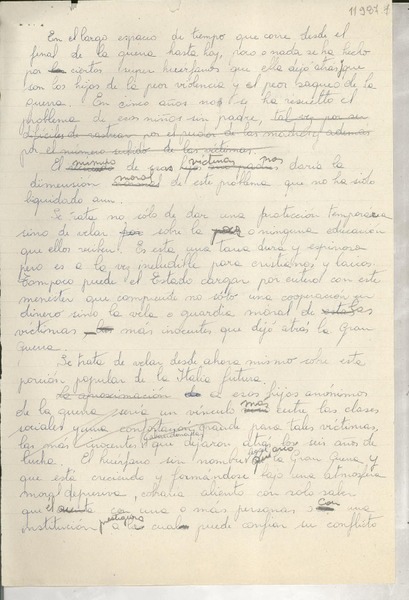 11931.7
En el largo espacio de tiempo que corre desde el
final de la guerra hasta hoy, poco o nada se ha hecho
por los ciertos huérfanos que ella dejó atrás, que
son los hijos de la peor violencia y el peor saqueo de la
guerra. En cinco años no se ha resuelto el
problema de esos niños sin padre, tal vez por ser
difíciles de rastrear por el pudor de las madres y además
por el número subido de las víctimas.
El número de esas víctimas nos daría la
dimensión moral de este problema que no ha sido
liquidado aun.
Se trata no sólo de dar una protección temporaria
sino de velar sobre la poca o ninguna educación
que ellos reciben. Es esta una tarea dura y espinosa
pero es a la vez ineludible para cristianos y laicos.
Tampoco puede el Estado cargar por entero con este
menester que comprende no sólo una cooperación en
dinero sino la vela o guardia moral de estas las
víctimas más inocentes que dejó atrás la Gran
Guerra.
Se trata de velar desde ahora mismo sobre esta
porción popular de la Italia futura.
La aproximación de a esos hijos anónimos
de la guerra sería un vínculo más entre las clases
sociales y una confortación grande para tales víctimas,
las más inocentes que dejaron atrás los seis años de
lucha. El huérfano sin nombre que la Gran Guerra y
que está creciendo y formándose bajo una atmósfera
moral depresiva, cobraría aliento con solo saber
que cuenta con una o más personas o con una
institución a la cual puede confiar su conflicto